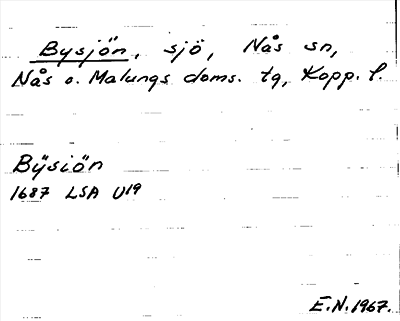 Bysjön, sjö, Nås sn,
Nås o. Malungs doms. tg, Kopp. l.
Bÿsiön
1687 LSA U19
E.N. 1967.